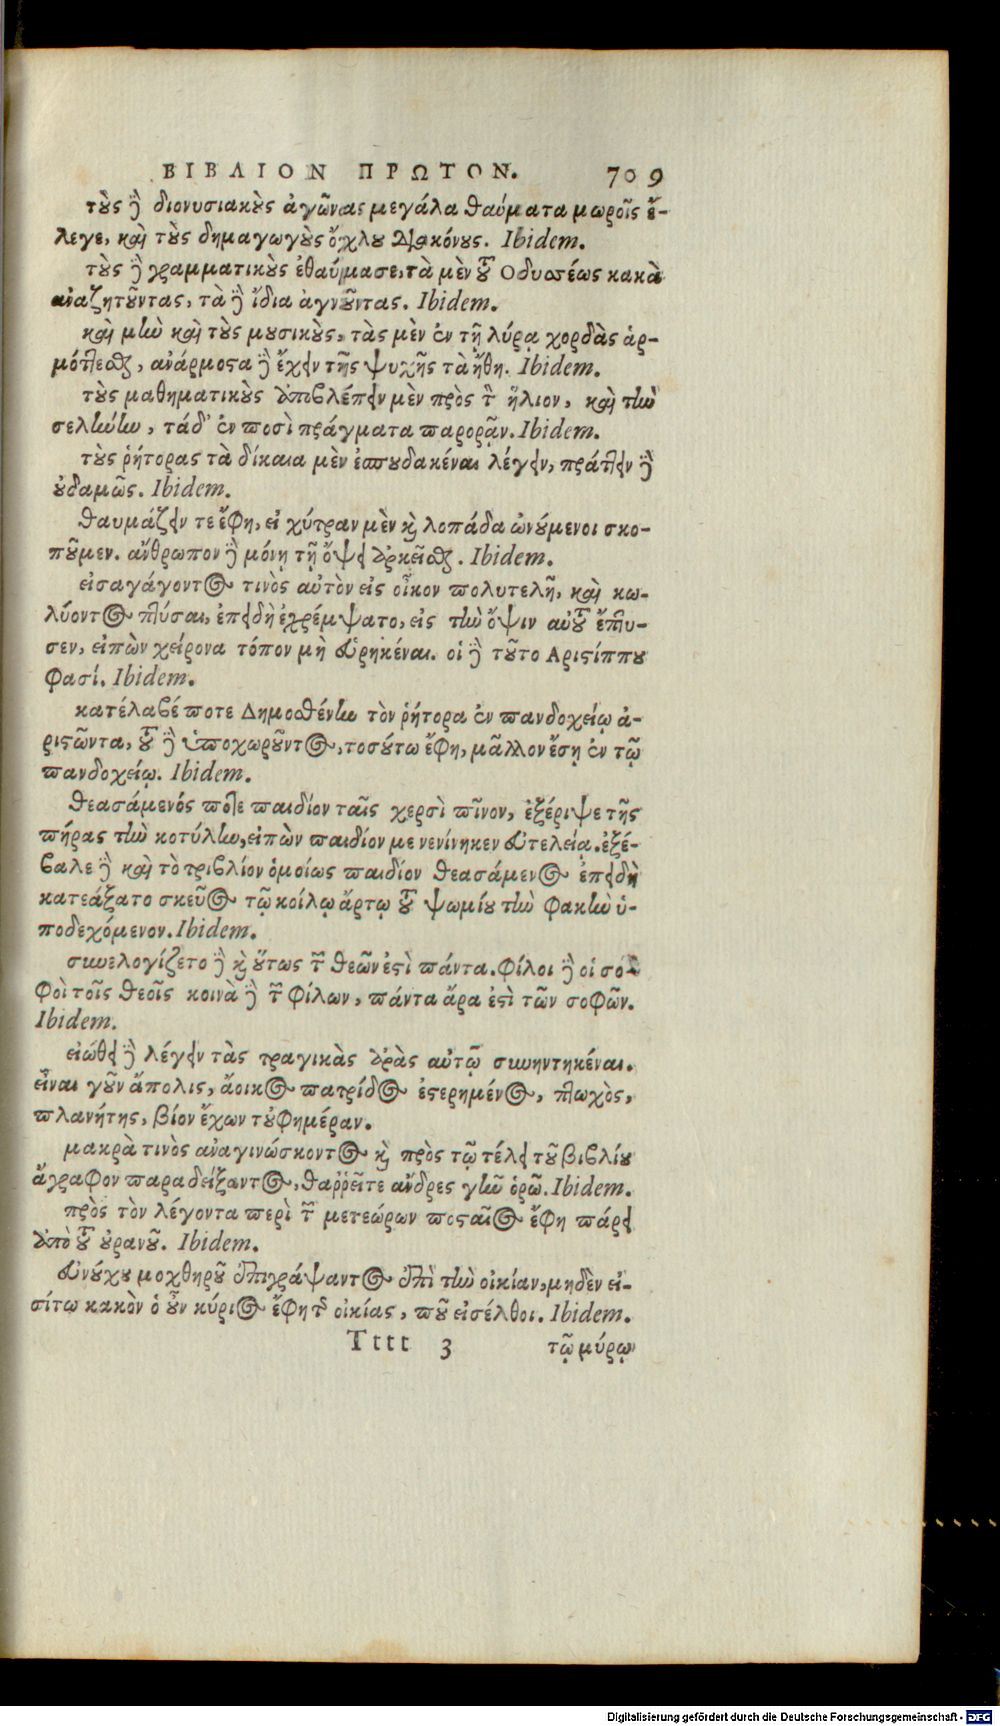 ΒΙΒΛΙΟΝ ΠΡΩΤΟΝ. 709
τοὺς δὲ διονυσιακοὺς ἀγῶνας μεγάλα θαύματα μωροῖς ἔ-
λεγε, καὶ τοὺς δημαγωγοὺς ὄχλου διακόνους. Ibidem.
τοὺς δὲ γραμματικοὺς ἐθαύμασε, τὰ μὲν τοῦ Οδυσσέως κακὰ
ἀναζητοῦντας, τὰ δὲ ἴδια ἀγνοοῦντας. Ibidem.
καὶ μὴν καὶ τοὺς μουσικοὺς, τὰς μὲν ἐν τῇ λύρᾳ χορδὰς ἁρ-
μόττεσθαι, ἀνάρμοστα δὲ ἔχειν τῆς ψυχῆς τὰ ἤθη. Ibidem.
τοὺς μαθηματικοὺς ἀποβλέπειν μὲν πρὸς τὸν ἥλιον, καὶ τὴν
σελήνην, τάδ' ἐν ποσὶ πράγματα παρορᾷν. Ibidem.
τοὺς ῥήτορας τὰ δίκαια μὲν ἐσπουδακέναι λέγειν, πράττειν δὲ
οὐδαμῶς. Ibidem.
θαυμάζειν τε ἔφη, εἰ χύτραν μὲν καὶ λοπάδα ὠνούμενοι σκο-
ποῦμεν. ἄνθρωπον δὲ μόνῃ τῇ ὄψει ἀρκεῖσθαι. Ibidem.
εἰσαγάγοντος τινὸς αὐτὸν εἰς οἶκον πολυτελῆ, καὶ κω-
λύοντος πτύσαι, ἐπειδὴ ἐχρέμψατο, εἰς τὴν ὄψιν αὐτοῦ ἔπτυ-
σεν, εἰπὼν χείρονα τόπον μὴ εὑρηκέναι. οἱ δὲ τοῦτο Αριστίππου
φασί. Ibidem.
κατέλαβέ ποτε Δημοσθένην τὸν ῥήτορα ἐν πανδοχείῳ ἀ-
ριστῶντα, τοῦ δὲ ὑποχωροῦντος, τοσούτῳ ἔφη, μᾶλλον ἔσῃ ἐν τῷ
πανδοχείῳ. Ibidem.
θεασάμενός ποτε παιδίον ταῖς χερσὶ πῖνον, ἐξέριψε τῆς
πήρας τὴν κοτύλην, εἰπὼν παιδίον με νενίκηκεν εὐτελείᾳ. ἐξέ-
βαλε δὲ καὶ τὸ τρυβλίον ὁμοίως παιδίον θεασάμενος ἐπειδὴ
κατεάξατο σκεῦος τῷ κοίλῳ ἄρτῳ τοῦ ψωμίου τὴν φακὴν ὑ-
ποδεχόμενον. Ibidem.
συνελογίζετο δὲ καὶ οὕτως τῶν θεῶν ἐστὶ πάντα. φίλοι δὲ οἱ σο-
φοὶ τοῖς θεοῖς κοινὰ δὲ τῶν φίλων, πάντα ἄρα ἐστὶ τῶν σοφῶν.
Ibidem.
εἰώθει δὲ λέγειν τὰς τραγικὰς ἀρὰς αὐτῷ συνηντηκέναι.
εἶναι γοῦν ἄπολις, ἄοικος πατρίδος ἐστερημένος, πτωχὸς,
πλανήτης, βίον ἔχων τοὐφημέραν.
μακρὰ τινὸς ἀναγινώσκοντος καὶ πρὸς τῷ τέλει τοῦ βιβλίου
ἄγραφον παραδείξαντος, θαῤῥεῖτε ἄνδρες γῆν ὁρῶ. Ibidem.
πρὸς τὸν λέγοντα περὶ τῶν μετεώρων ποσταῖος ἔφη πάρει
ἀπὸ τοῦ οὐρανοῦ. Ibidem.
Εὐνούχου μοχθηροῦ ἐπιγράψαντος ἐπὶ τὴν οἰκίαν, μηδὲν εἰ-
σίτω κακὸν ὁ οὖν κύριος ἔφη τῆς οἰκίας, ποῦ εἰσέλθοι. Ibidem.
Tttt 3 τῷ μύρῳ
Digitalisierung gefördert durch die Deutsche Forschungsgemeinschaft - DFG